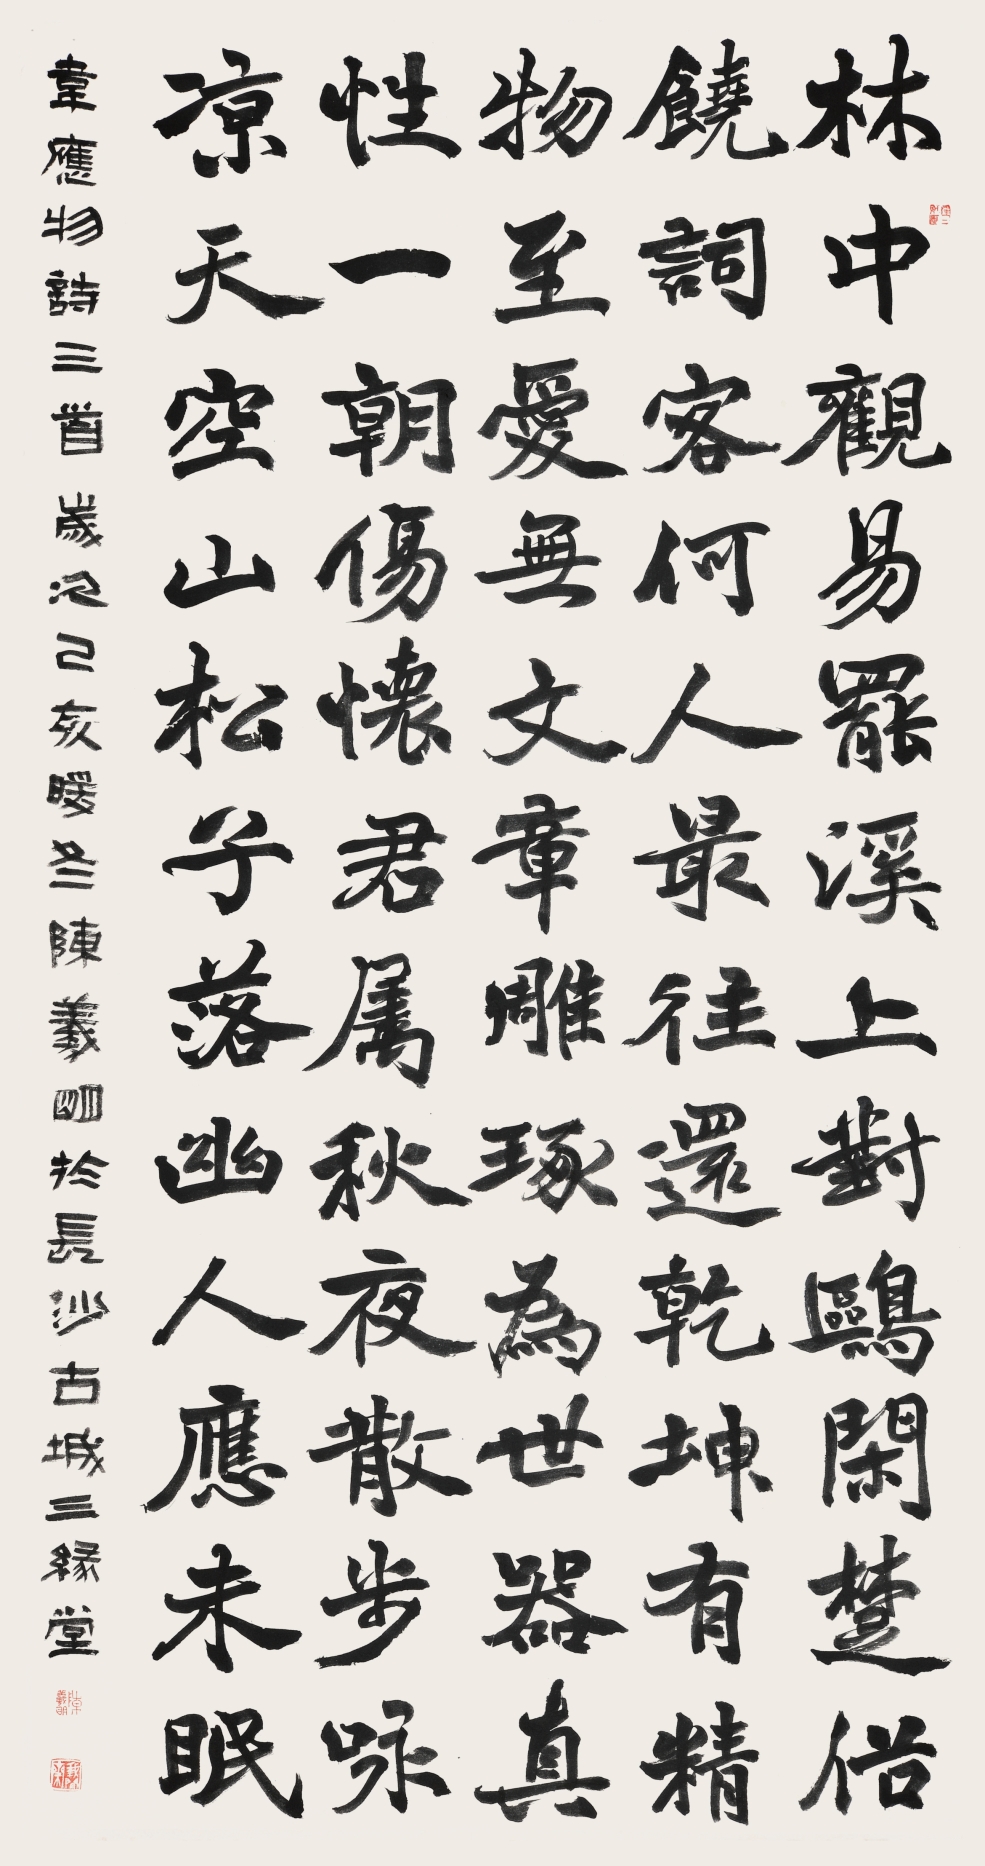 林中觀易罷溪上對鷗閑楚俗
饒詞客何人最往還乾坤有精
物至愛無文章雕琢為世器真
性一朝傷懷君屬秋夜散步咏
凉天空山松子落幽人應未眠
韋應物詩三首歲次己亥暖冬陳羲明於長沙古城三緣堂